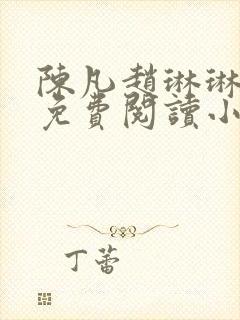 陳凡趙琳琳
免費閱讀小
丁蕾